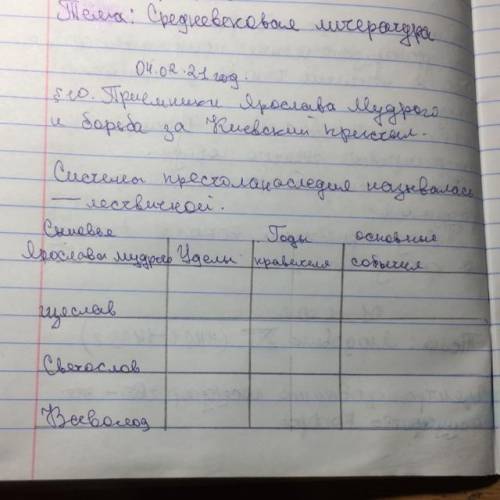 Тема: Средневековая литература
04.02.21 год.
§10. Приемники Ярослава Мудрого
и борьба за Киевский престол.
Система престоланаследия называлась
— лествичной.
Сыновье Годы основные
Ярослава мудрого Уделы правления события
Изеслав
Святослав
Всеволод